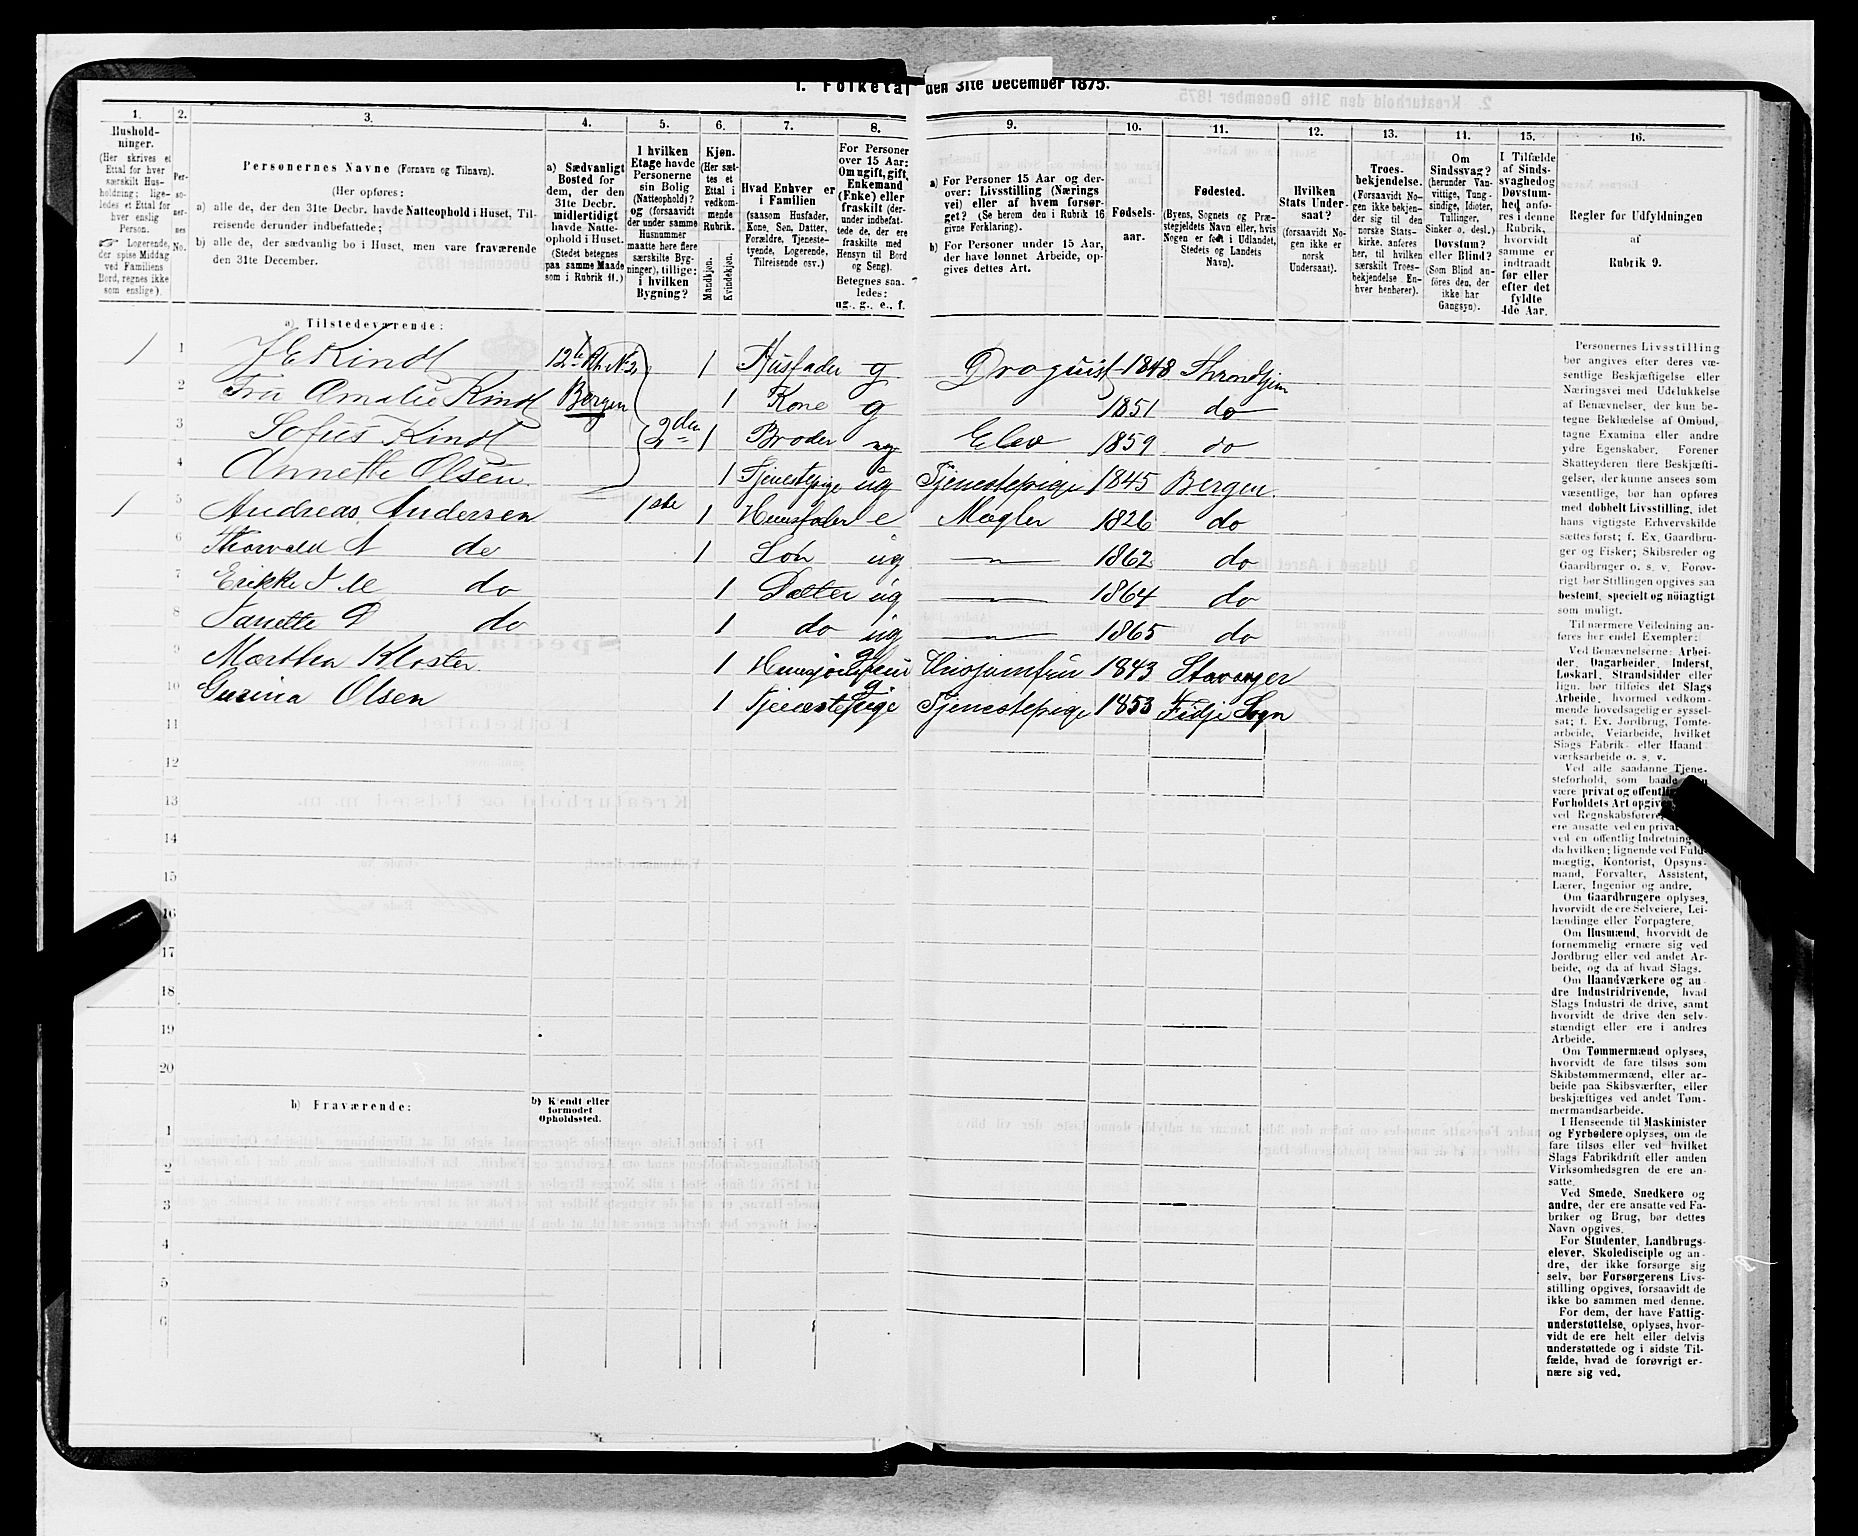 1. Folketal den 31te December 1875.
1. 2. 3. 4. 5. 6. 7. 8. 9. 10. 11. 12. 13. 14. 15. 16.
Husholdninger.
(Her skrives et
Ettal for hver
særskilt Hus-
holdning; lige-
ledes et Ettal for
hver enslig
Person.
☞ Logerende,
der spise Middag
ved Familiens
Bord, regnes ikke
som enslige).
Per-
so-
ner-
nes
No.
Personernes Navne (Fornavn og Tilnavn).
(Her opføres:
a) alle de, der den 31te Decbr. havde Natteophold i Huset, Til-
reisende derunder indbefattede;
b) alle de, der sædvanlig bo i Huset, men vare fraværende
den 31te December.
a) Sædvanligt
Bosted for
dem, der den
31te Decbr.
midlertidigt
havde Natte-
ophold i Huset.
(Stedet betegnes
paa samme Maade
som i Rubrik 11.)
I hvilken
Etage havde
Personerne
sin Bolig
(Natteophold)?
og (forsaavidt
der under samme
Husnummer
maatte høre flere
særskilte Byg-
ninger), tillige:
i hvilken
Bygning?
Kjøn.
(Her sæt-
tes et
Ettal i
vedkom-
mende
Rubrik.
Mandkjøn.
Kvindekjøn.
Hvad Enhver er
i Familien
(saasom Husfader,
Kone, Søn, Datter,
Forældre, Tjeneste-
tyende, Logerende,
Tilreisende osv.)
For Personer
over 15 Aar:
Om ugift, gift,
Enkemand
(Enke) eller
fraskilt (der-
under indbefat-
tede de, der ere
fraskilte med
Hensyn til Bord
og Seng).
Betegnes saa-
ledes:
ug., g., e., f.
a) For Personer 15 Aar og der-
over: Livsstilling (Nærings
vei) eller af hvem forsør-
get? (Se herom den i Rubrik 16
givne Forklaring).
b) For Personer under 15 Aar,
der have lønnet Arbeide, op-
gives dettes Art.
Fødsels-
aar.
Fødested.
(Byens, Sognets og Præ-
stegjeldets Navn eller, hvis
Nogen er født i Udlandet,
Stedets og Landets
Navn).
Hvilken
Stats Under-
saat?
(forsaavidt No-
gen ikke er
norsk
Undersaat).
Troes-
bekjendelse.
(Forsaavidt No-
gen ikke bekjen-
der sig til den
norske Stats-
kirke, anføres
her, til hvilken
særskilt Troes-
bekjendelse En-
hver henhører).
Om
Sindssvag?
(herunder Van-
vittige, Tung-
sindige, Idioter,
Tullinger,
Sinker o. desl.)
Døvstum?
eller Blind?
(Som Blind an-
føres den, der
ikke har
Gangsyn).
I Tilfælde
af Sinds-
svaghed og
Døvstum-
hed anfø-
res i denne
Rubrik,
hvorvidt
samme er
indtraadt
før eller
efter det
fyldte
4de Aar.
Regler for Udfyldningen
af
Rubrik 9.
a) Tilstedeværende:
1 1 J E Kindt 12te Rh. No 2 1 Husfader g Droguist 1848 Throndhjem
2 Fru Amalie Kindt Bergen 1 Kone g 1851 do
3 Sofus Kindt 2den 1 Broder ug Elev 1859 do
4 Annette Olsen 1 Tjenestepige ug Tjenestepige 1845 Bergen
1 5 Andreas Andersen 1ste 1 Huusfader e Mægler 1826 do
6 Thorvald A do 1 Søn ug — 1862 do
7 Erikke do 1 Datter ug — 1864 do
8 Nanette D do 1 do ug — 1865 do
9 Marthea Kloster 1 Huusjomfru Husjomfru 1843 Stavanger
10 Gurina Olsen 1 Tjenestepige Tjenestepige 1853 Fidje Sogn
11
12
13
14
15
16
17
18
19
20
b) Fraværende:
b) Kjendt eller
formodet
Opholdssted.
1
2
3
4
5
6
Personernes Livsstilling
bør angives efter deres væ-
sentlige Beskjæftigelse eller
Næringsvei med Udelukkelse
af Benævnelser, der kun be-
tegne Beklædelse af Ombud,
tagne Examina eller andre
ydre Egenskaber. Forener
Skatteyderen flere Beskjæfti-
gelser, der kunne ansees som
væsentlige, bør han opføres
med dobbelt Livsstilling, idet
hans vigtigste Erhvervskilde
sættes først; f. Ex. Gaardbru-
ger og Fisker; Skibsreder og
Gaardbruger o. s. v. Forøv-
rigt bør Stillingen opgives saa
bestemt, specielt og nöiagtigt
som muligt.
Til nærmere Veiledning an-
føres her endel Exempler:
Ved Benævnelserne: Arbei-
der, Dagarbeider, Inderst,
Løskarl, Strandsidder eller
lign. bør tilføies det Slags
Arbeide, hvormed vedkom-
mende hovedsagelig er syssel-
sat; f. Ex. Jordbrug, Tomte-
arbeide, Veiarbeide, hvilket
Slags Fabrik- eller Haand
værksarbeide o. s. v.
Ved alle saadanne Tjene-
steforhold, som baade
være privat og offentlig
Forholdets Art opgives
ved Regnskabsførere,
ere ansatte ved en privat
ved en offentlig Indretning
da hvilken; lignende ved Fuld-
mægtig, Kontorist, Opsyns-
mand, Forvalter, Assistent,
Lærer, Ingeniør og andre.
Om Gaardbrugere oplyses,
hvorvidt de ere Selveiere, Lei-
lændinge eller Forpagtere.
Om Husmænd, hvorvidt de
fornemmelig ernære sig ved
Jordbrug eller ved andet Ar-
beide, og da af hvad Slags.
Om Haandværkere og an-
dre Industridrivende, hvad
Slags Industri de drive, samt
hvorvidt de drive den selv-
stændigt eller ere i andres
Arbeide.
Om Tømmermænd oplyses,
hvorvidt de fare tilsøs som
Skibstømmermænd, eller ar-
beide paa Skibsværfter, eller
beskjæftiges ved andet Tøm-
mermandsarbeide.
I Henseende til Maskinister
og Fyrbødere oplyses, om de
fare tilsøs eller ved hvilket
Slags Fabrikdrift eller anden
Virksomhedsgren de ere an-
satte.
Ved Smede, Snedkere og
andre, der ere ansatte ved Fa-
briker og Brug, bør dettes
Navn opgives.
For Studenter, Landbrugs-
elever, Skoledisciple og an-
dre, der ikke forsørge sig
selv, bør Forsørgerens Livs-
stilling opgives, forsaavidt de
ikke bo sammen med denne.
For dem, der have Fattig-
understøttelse, oplyses, hvor-
vidt de ere helt eller delvis
understøttede og i sidste Til-
fælde, hvad de forøvrigt er-
nære sig ved.